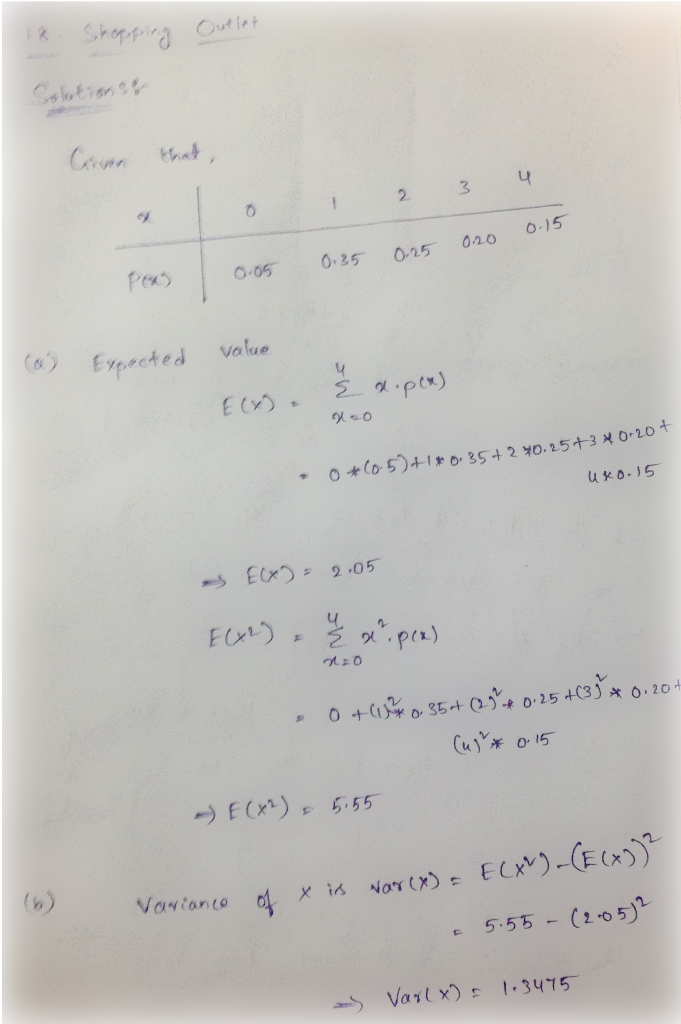 18. Shopping Outlet
Solutions:
Given that,
x 0 1 2 3 4
P(x) 0.05 0.35 0.25 0.20 0.15
(a) Expected value
E(x) = 4 Σ x=0 x.p(x)
= 0*(0.5)+1*0.35+2*0.25+3*0.20+
4*0.15
⇒ E(x) = 2.05
E(x²) = 4 Σ x=0 x².p(x)
= 0+(1)²*0.35+(2)²*0.25+(3)²*0.20+
(4)²*0.15
⇒ E(x²) = 5.55
(b) Variance of x is var(x) = E(x²)-(E(x))²
= 5.55 - (2.05)²
⇒ Var(x) = 1.3475